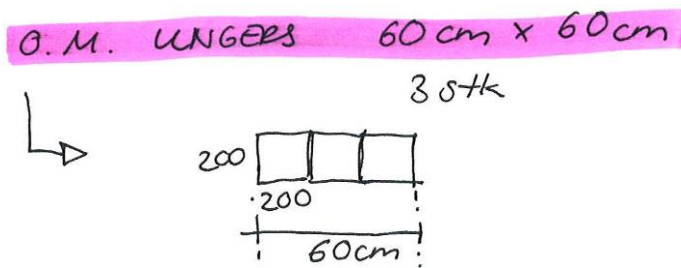 O.M. UNGERS 60 cm x 60 cm
3 stk
200
200
60cm